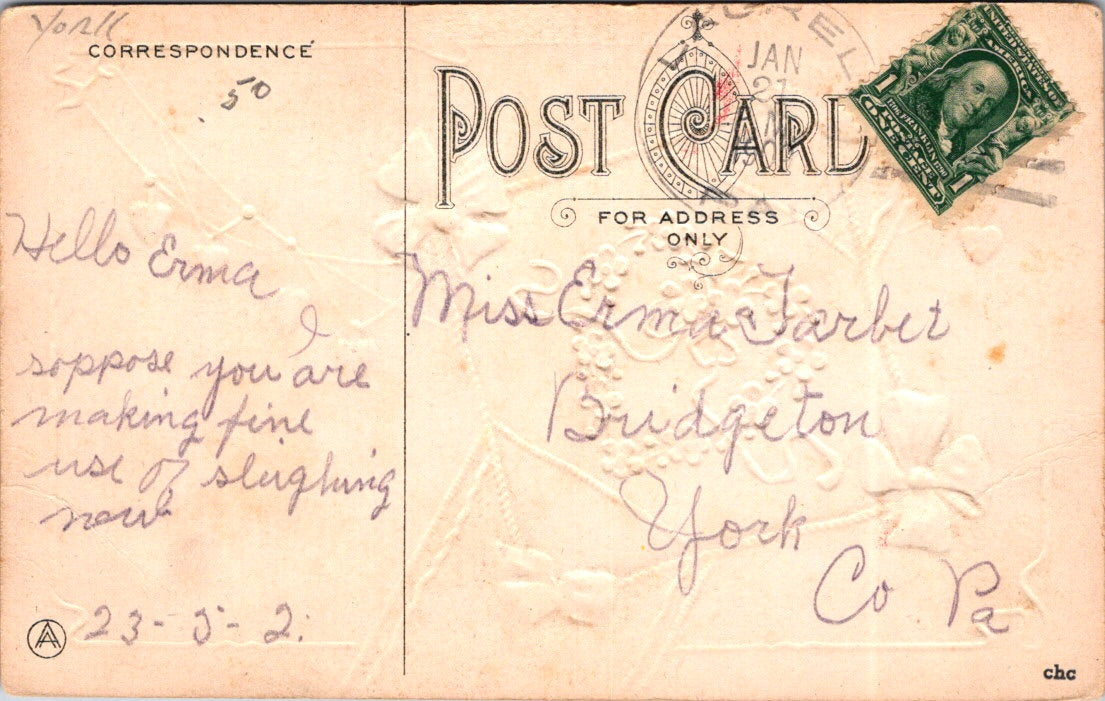 York
CORRESPONDENCE
50
POST CARD
FOR ADDRESS
ONLY
JAN
21
PA
UNITED STATES OF AMERICA
1
1
Hello Erma
I
soppose you are
making fine
use of sleighing
now
23-5-2.
Miss Erma Tarbet
Bridgeton
York
Co Pa
A
chc